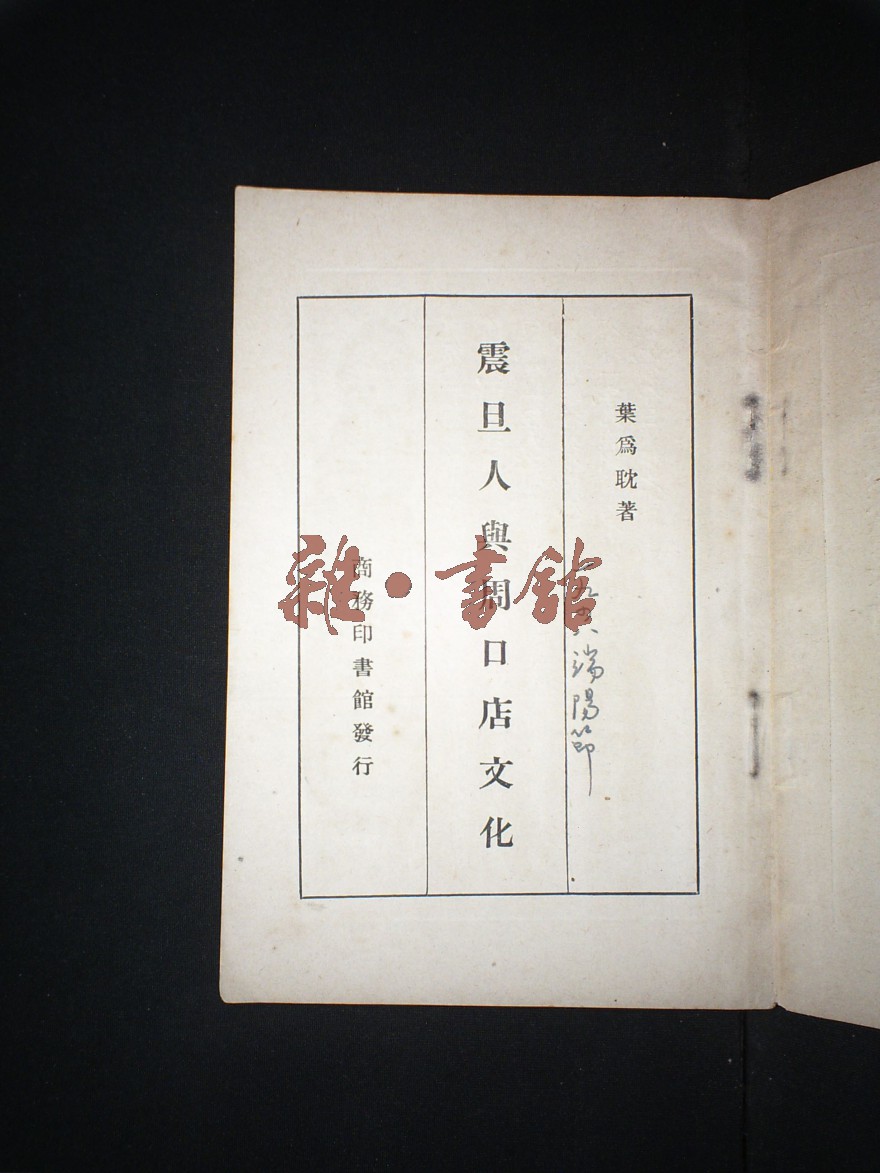 葉爲耽著
九四八端陽節
震旦人與周口店文化
商務印書館發行
雜·書館